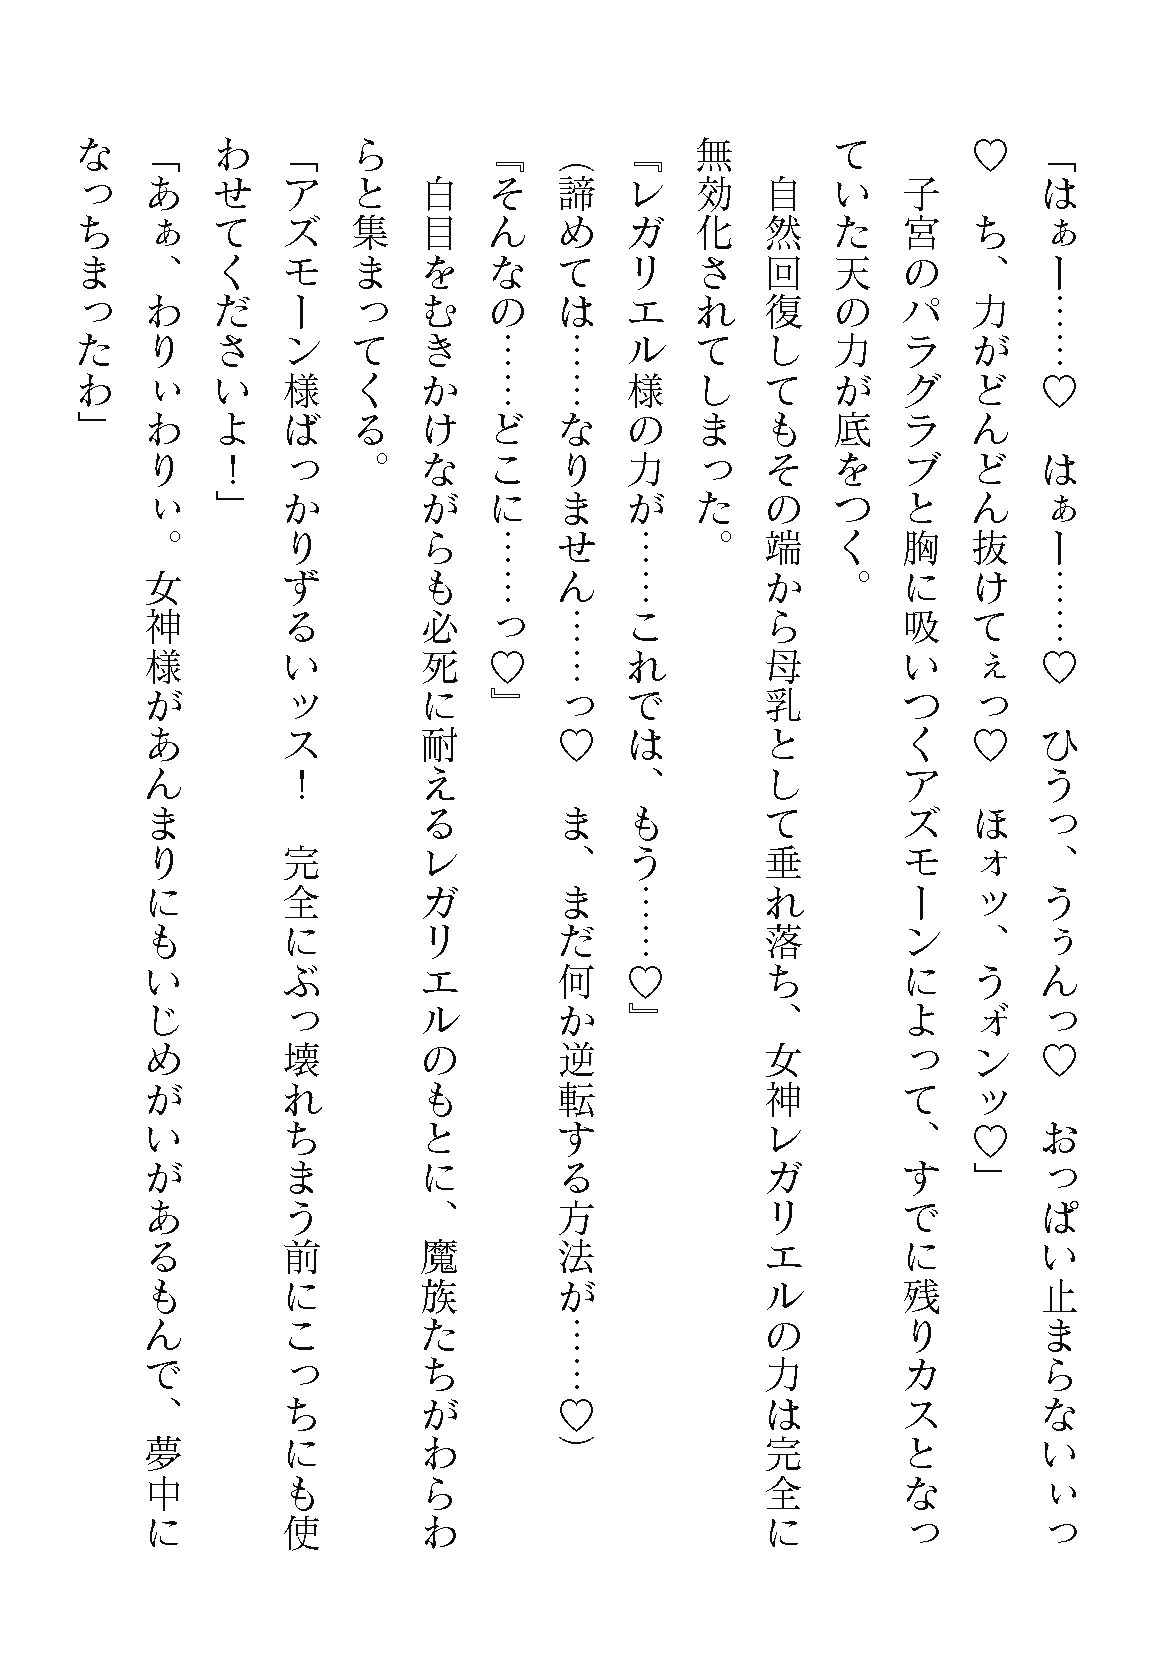 「はぁー……♡　はぁー……♡　ひうっ、うぅんっ♡　おっぱい止まらないぃっ
♡　ち、力がどんどん抜けてぇっ♡　ほォッ、うオ゛ンッ♡」
　子宮のパラグラブと胸に吸いつくアズモーンによって、すでに残りカスとなっ
ていた天の力が底をつく。
　自然回復してもその端から母乳として垂れ落ち、女神レガリエルの力は完全に
無効化されてしまった。
『レガリエル様の力が……これでは、もう……♡』
（諦めては……なりません……っ♡　ま、まだ何か逆転する方法が……♡）
『そんなの……どこに……っ♡』
　白目をむきかけながらも必死に耐えるレガリエルのもとに、魔族たちがわらわ
らと集まってくる。
「アズモーン様ばっかりずるいッス！　完全にぶっ壊れちまう前にこっちにも使
わせてくださいよ！」
「あぁ、わりぃわりぃ。女神様があんまりにもいじめがいがあるもんで、夢中に
なっちまったわ」